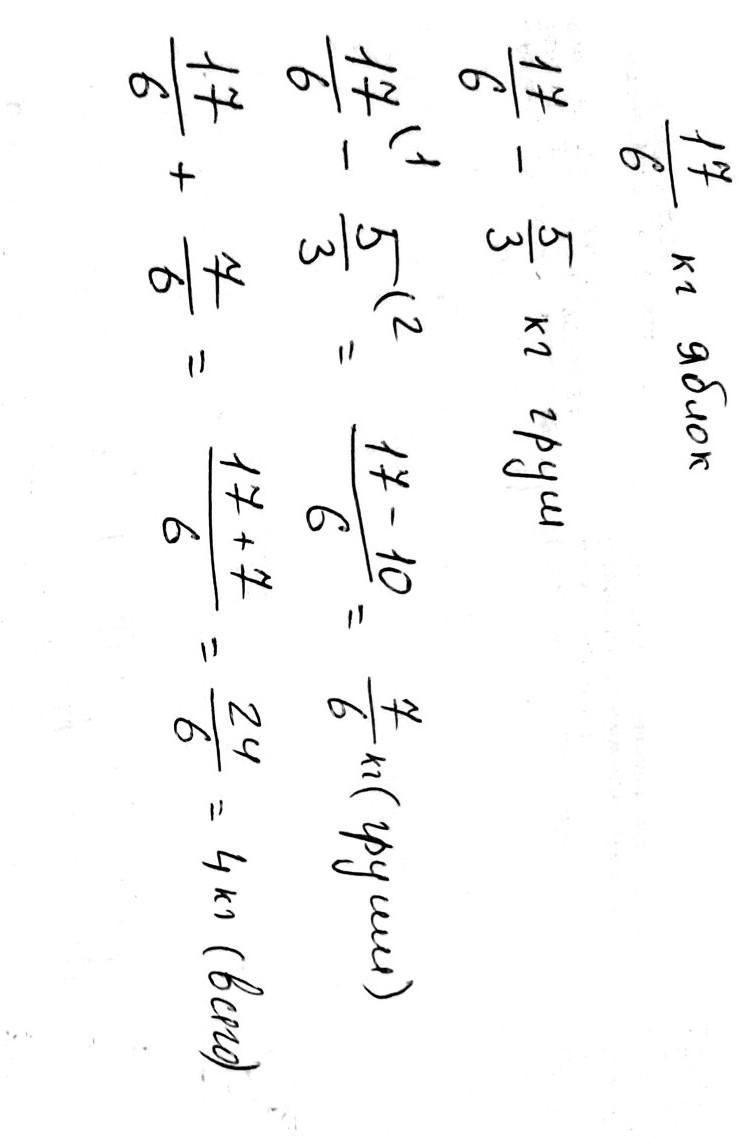 17/6 кг яблок
17/6 - 5/3 кг груш
17/6 (1 - 5/3 (2 = 17-10/6 = 7/6 кг (груши)
17/6 + 7/6 = 17+7/6 = 24/6 = 4 кг (всего)